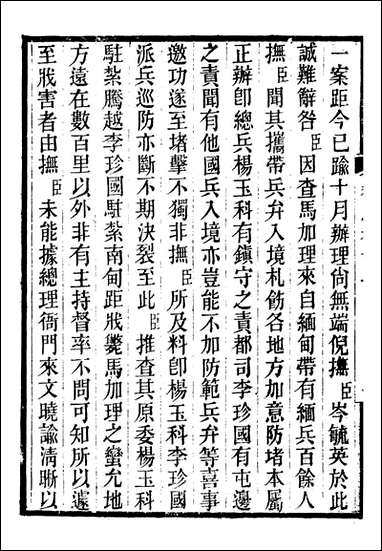 一案距今已踰十月辦理尙無端倪撫臣岑毓英於此
誠難辭咎臣因查馬加理來自緬甸帶有緬兵百餘人
撫臣聞其攜帶兵弁入境札飭各地方加意防堵本屬
正辦卽總兵楊玉科有鎭守之責都司李珍國有屯邊
之責聞有他國兵入境亦豈能不加防範兵弁等喜事
邀功遂至堵擊不獨非撫臣所及料卽楊玉科李珍國
派兵巡防亦斷不期決裂至此臣推查其原委楊玉科
駐紮騰越李珍國駐紮南甸距戕斃馬加理之蠻允地
方遠在數百里以外非有主持督率不問可知所以遽
至戕害者由撫臣未能據總理衙門來文曉諭淸晰以